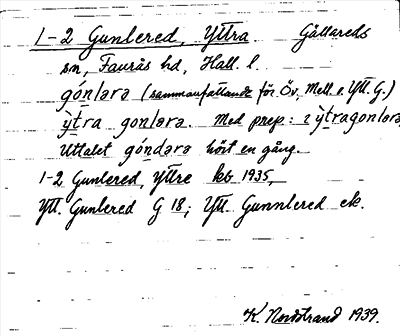 1-2 Gunlered, Yttra Gällareds
sn, Faurås hd, Hall. l.
gónlərə (sammanfattande för Öv, Mell. o. Ytt. G.)
ỳtra gonlərə. Med prep.: i ỳtragonlərə,
Uttalet góndərə hört en gång.
1-2 Gunlered, Yttre kb 1935,
Ytt. Gunlered G 18; Ytt. Gunnlered ek.
K. Nordstrand 1939.